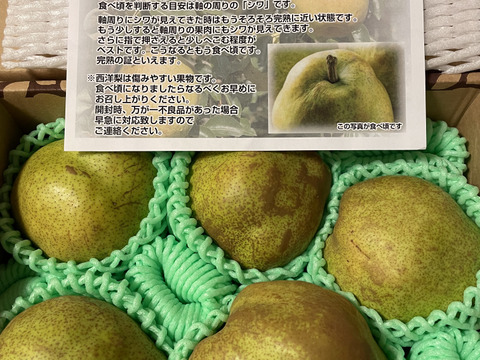 食べ頃を判断する目安は軸の周りの「シワ」です。
軸周りにシワが見えてきた時はもうそろそろ完熟に近い状態です。
もう少しすると軸周りの果肉にもシワが見えてきます。
さらに指で押さえると少しへこむ程度が
ベストです。こうなるともう食べ頃です。
完熟の証といえます。
※西洋梨は傷みやすい果物です。
食べ頃になりましたらなるべくお早めに
お召し上がりください。
開封時、万が一不良品があった場合
早急に対応致しますので
ご連絡ください。
この写真が食べ頃です